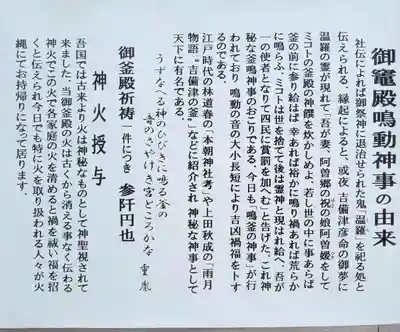 御竈殿鳴動神事の由来
社伝によれば御祭神に退治せられた鬼「温羅」を祀る処と
伝えられる。縁起によると、或夜、吉備津彦命の御夢に
温羅の霊が現れて「吾が妻、阿曽郷の祝の娘阿曽媛をして
ミコトの釜殿の神饌を炊かしめよ、若し世の中に事あらば
釜の前に参り給はば幸あれば裕かに鳴り禍あれば荒らか
に鳴らふ。ミコトは世を捨てて後は霊神と現はれ給へ、吾が
一の使者となりて四民に賞罰を加へむ」と告げた。これ神
秘な釜鳴神事のおこりである。今日も「鳴釜の神事」が行
われており、鳴動の音の大小長短により吉凶禍福をトす
るのである。
江戸時代の林道春の「本朝神社考」や上田秋成の「雨月
物語」『吉備津の釜』などに紹介され、神秘な神事として
天下に有名である。
うずなへる神のひびきに鳴る釜の
音のさやけき宮どころかな 重胤
御釜殿祈祷 一件につき 参阡円也
神火授与
吾国では古来より火は神秘なものとして神聖視されて
来ました。当御釜殿の火は古くから消える事なく伝わる
神火でこの火で各家庭の火を清めると禍を祓い福を招
くと伝えられ今日でも特に火を取り扱われる人々が火
縄にてお持帰りになって居ります。